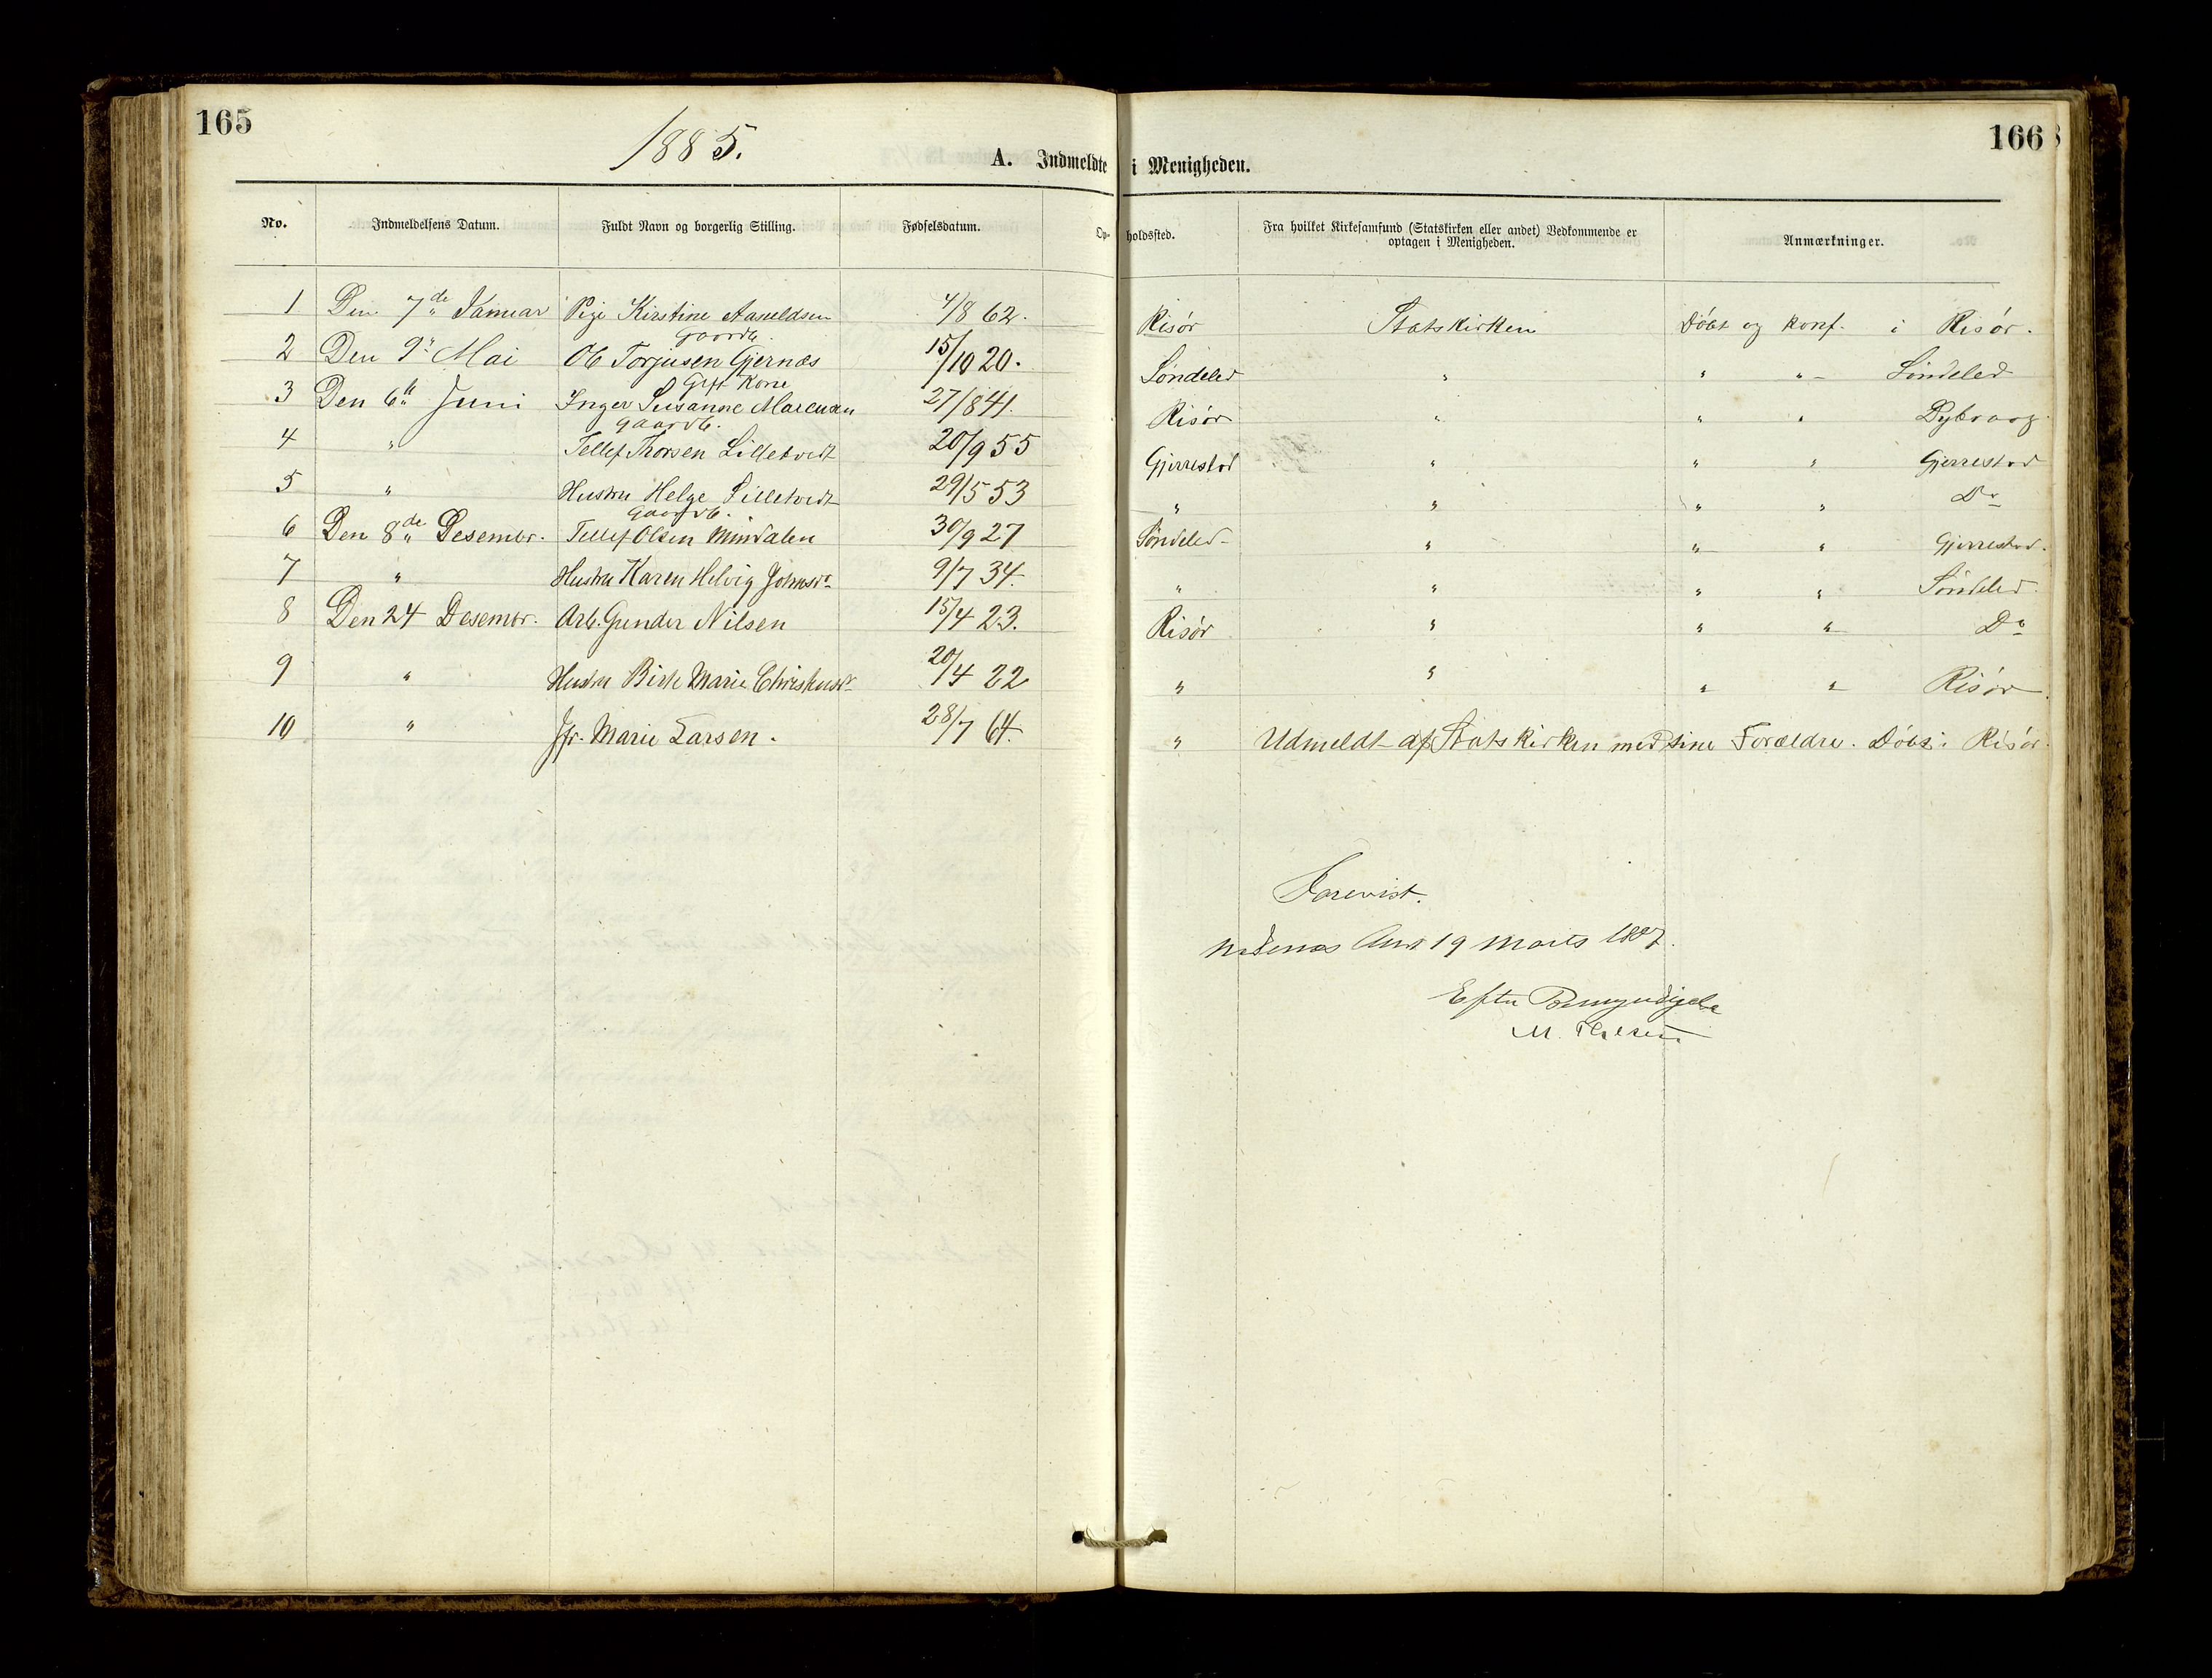 165
166
1885.
A. Indmeldte i Menigheden.
No. Indmeldelsens Datum. Fuldt Navn og borgerlig Stilling. Fødselsdatum. Op-holdssted. Fra hvilket Kirkesamfund (Statskirken eller andet) Vedkommende er optagen i Menigheden. Anmærkninger.
1 Den 7de Januar Pige Kirstine Aasuldsen 4/8 62. Risør Statskirken Döbt og konf. i Risör.
Gaardb.
2 Den 9" Mai Ole Torjusen Gjernæs 15/10 20. Söndeled " " " Söndeled
Gift Kone
3 Den 6te Juni Inger Susanne Marcusen 27/8 41. Risör " " " Dybvaag.
Gaardb.
4 " Tellef Thorsen Lilletvedt 20/9 55 Gjerrestad " " " Gjerrestad
5 " Hustru Helge Lilletvedt 29/5 53 " " " " Do
Gaardb.
6 Den 8de Desembr. Tellef Olsen Mindalen 30/9 27 Söndeled " " " Gjerrestad.
7 " Hustru Karen Helvig Johnsdr 9/7 34. " " " " Söndeled.
8 Den 24 Desembr. Arb. Gunder Nilsen 15/4 23. Risör " " " Do
9 " Hustru Birte Marie Christensdr 20/4 22 " " " " Risör.
10 " Jfr. Marie Larsen. 28/7 64. " Udmeldt af Statskirken med sine Forældre. Döbt i Risör.
Forevist.
Nedenæs Amt 19 Marts 1887.
Efter Bemyndigelse
M.